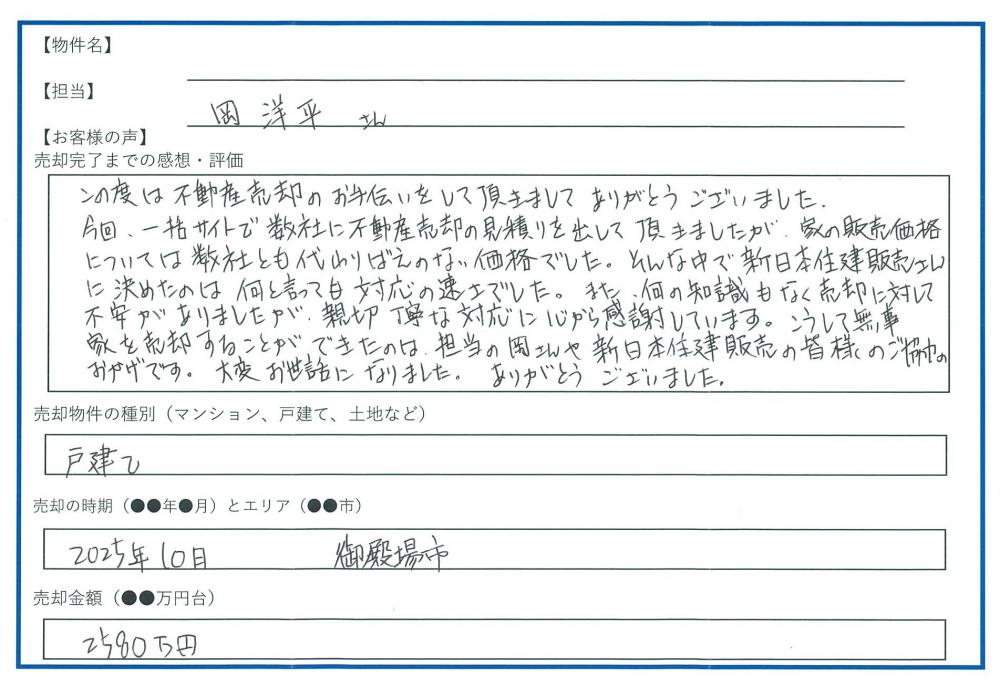 【物件名】
【担当】
岡 洋平 さん
【お客様の声】
売却完了までの感想・評価
この度は不動産売却のお手伝いをして頂きまして ありがとうございました.
今回、一括サイトで数社に不動産売却の見積りを出して頂きましたが、家の販売価格
については数社とも代わりばえのない価格でした。そんな中で新日本住建販売さん
に決めたのは 何と言っても対応の速さでした。また、何の知識もなく売却に対して
不安がありましたが、親切 丁寧な対応に心から感謝しています。こうして無事
家を売却することができたのは、担当の岡さんや 新日本住建販売の皆様のご協力の
おかげです。大変お世話になりました。ありがとう ございました.
売却物件の種別（マンション、戸建て、土地など）
戸建て
売却の時期（●●年●月）とエリア（●●市）
2025年10月 御殿場市
売却金額（●●万円台）
2580万円